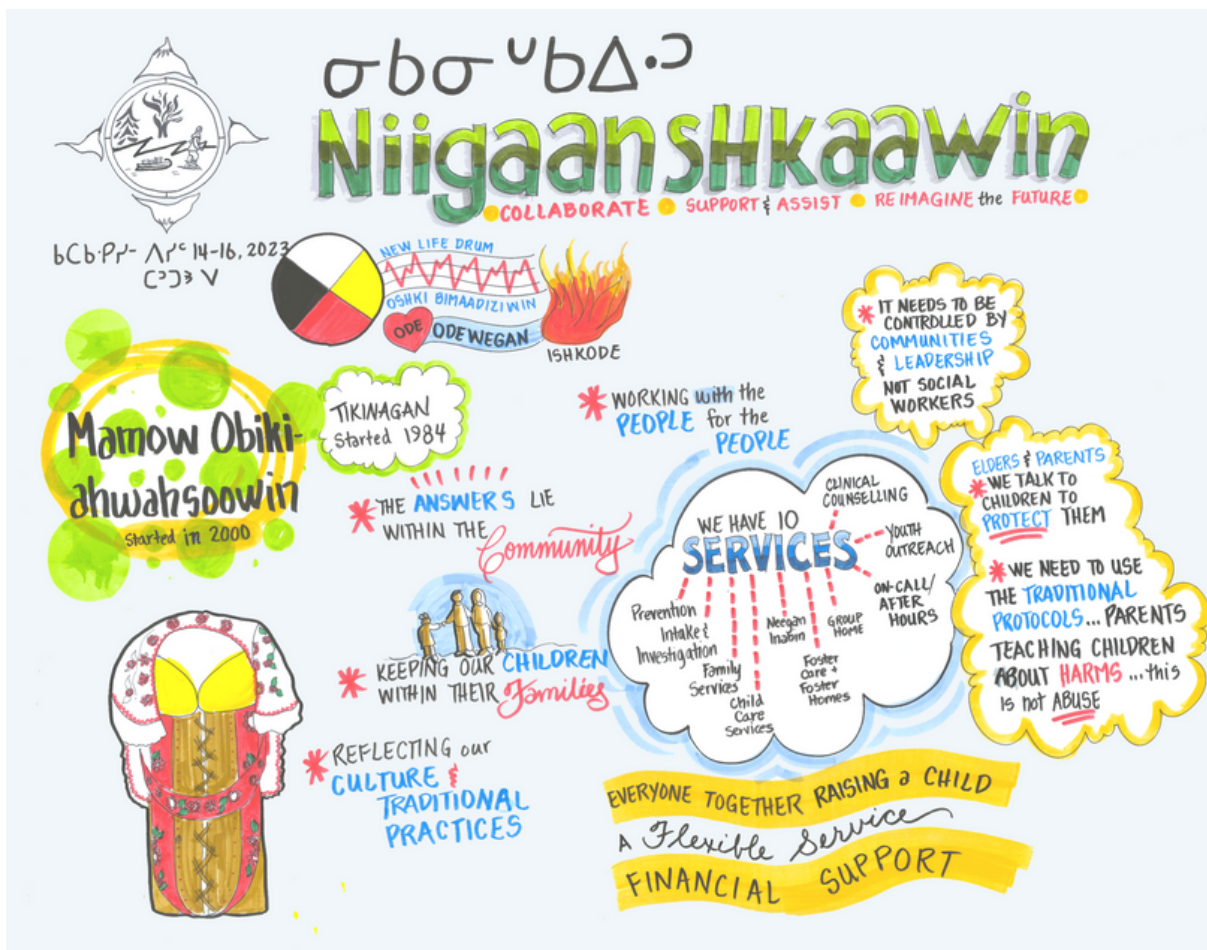 ᓂᑲᓂᐡᑲᐃᐧᑐ
NiigaansHkaawin
COLLABORATE SUPPORT & ASSIST REIMAGINE the FUTURE
14-16, 2023
NEW LIFE DRUM
OSHKI BIMAADIZIWIN
ODE ODEWEGAN
ISHKODE
Mamow Obiki-
ahwahsoowin
Started in 2000
TIKINAGAN
Started 1984
* THE ANSWERS LIE
WITHIN THE
Community
* KEEPING OUR CHILDREN
WITHIN THEIR Families
* REFLECTING our
CULTURE &
TRADITIONAL
PRACTICES
* WORKING with the
PEOPLE for the
PEOPLE
WE HAVE 10
SERVICES
Prevention
Intake &
Investigation
Family
Services
Child
Care
Services
Neegan
Inabin
Foster
Care +
Foster
Homes
GROUP
HOME
ON-CALL/
AFTER
HOURS
YOUTH
OUTREACH
CLINICAL
COUNSELLING
* IT NEEDS TO BE
CONTROLLED BY
COMMUNITIES
& LEADERSHIP
NOT SOCIAL
WORKERS
ELDERS & PARENTS
* WE TALK TO
CHILDREN TO
PROTECT THEM
* WE NEED TO USE
THE TRADITIONAL
PROTOCOLS... PARENTS
TEACHING CHILDREN
ABOUT HARMS ...this
is not ABUSE
EVERYONE TOGETHER RAISING a CHILD
A Flexible Service
FINANCIAL SUPPORT